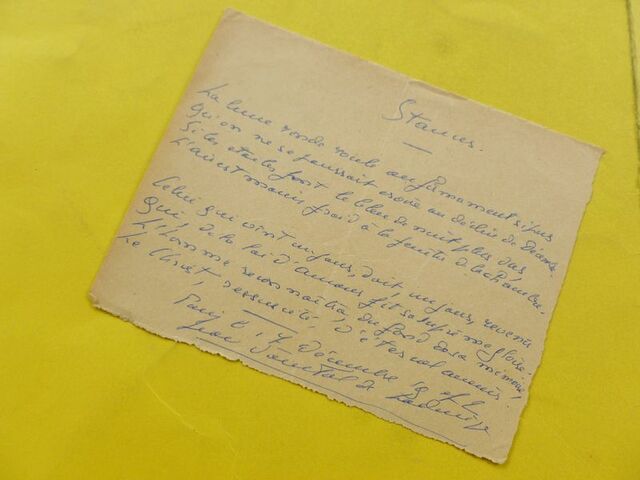 Stances.
La lune ronde roule au firmament si pur
Qu'on ne se pourrait croire au déclin de Décembre
Si les étoiles font le bleu de nuit plus
L'air est moins froid à la fenêtre de la chambre.
Celui qui vint un jour, doit, un jour, revenir
Qui, de la loi d'amour fit sa suprême gloire.
L'homme reconnaîtra, du fond de sa mémoire,
Le Christ, ressuscité, l'éternel
Paris le 17 décembre
Jean de